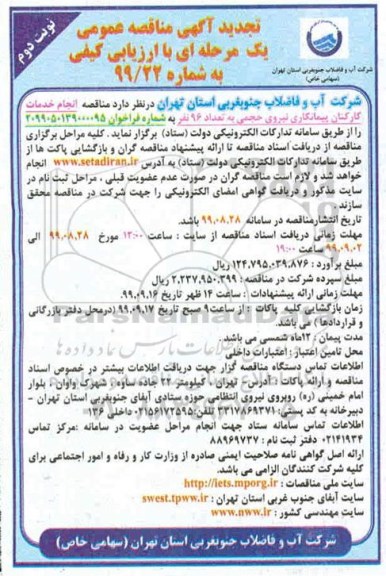 نوبت دوم
تجدید آگهی مناقصه عمومی
یک مرحله ای با ارزیابی کیفی
به شماره ۹۹/۲۲
شرکت آب و فاضلاب جنوبغربی استان تهران
(سهامی خاص)
شرکت آب و فاضلاب جنوبغربی استان تهران درنظر دارد مناقصه انجام خدمات
کارکنان پیمانکاری نیروی حجمی به تعداد ۹۶ نفر به شماره فراخوان ۲۰۹۹۰۵۰۱۳۹۰۰۰۰۹۵
را از طریق سامانه تدارکات الکترونیکی دولت (ستاد) برگزار نماید. کلیه مراحل برگزاری
مناقصه از دریافت اسناد مناقصه تا ارائه پیشنهاد مناقصه گران و بازگشایی پاکت ها از
طریق سامانه تدارکات الکترونیکی دولت (ستاد) به آدرس www.setadiran.ir انجام
خواهد شد و لازم است مناقصه گران در صورت عدم عضویت قبلی، مراحل ثبت نام در
سایت مذکور و دریافت گواهی امضای الکترونیکی را جهت شرکت در مناقصه محقق
سازند.
تاریخ انتشارمناقصه در سامانه ۹۹.۰۸.۲۸ باشد.
مهلت زمانی دریافت اسناد مناقصه از سایت : ساعت ۱۲:۰۰ مورخ ۹۹.۰۸.۲۸ الی
۹۹.۰۹.۰۲ ساعت ۱۹:۰۰
مبلغ برآورد : ۱۲۴,۷۹۵,۰۳۹,۸۷۶ ریال
مبلغ سپرده شرکت در مناقصه : ۲,۲۳۷,۹۵۰,۳۹۹ ریال
مهلت زمانی ارائه پیشنهادات : ساعت ۱۴ ظهر تاریخ ۹۹.۰۹.۱۶
زمان بازگشایی کلیه پاکات : از ساعت ۹ صبح تاریخ ۹۹.۰۹.۱۷ (درمحل دفتر بازرگانی
و قراردادها) می باشد.
مدت پیمان : ۱۲ماه شمسی می باشد.
محل تامین اعتبار : اعتبارات داخلی
اطلاعات تماس دستگاه مناقصه گزار جهت دریافت اطلاعات بیشتر در خصوص اسناد
مناقصه و ارائه پاکات : آدرس تهران - کیلومتر ۲۲ جاده ساوه - شهرک واوان - بلوار
امام خمینی (ره) روبروی نیروی انتظامی حوزه ستادی آبفای جنوبغربی استان تهران -
دبیرخانه کد پستی: ۳۳۱۷۸۶۹۳۷۱ تلفن:۰۲۱۵۶۱۷۲۵۹۵ داخلی ۱۳۶
اطلاعات تماس سامانه ستاد جهت انجام مراحل عضویت در سامانه :مرکز تماس
۰۲۱۴۱۹۳۴ دفتر ثبت نام : ۸۸۹۶۹۷۳۷
ارائه اصل گواهی نامه صلاحیت ایمنی صادره از وزارت کار و رفاه و امور اجتماعی برای
کلیه شرکت کنندگان الزامی می باشد.
سایت ملی مناقصات : http://iets.mporg.ir
سایت آبفای جنوب غربی استان تهران : swest.tpww.ir
سایت مهندسی کشور : www.nww.ir
شرکت آب و فاضلاب جنوبغربی استان تهران (سهامی خاص)